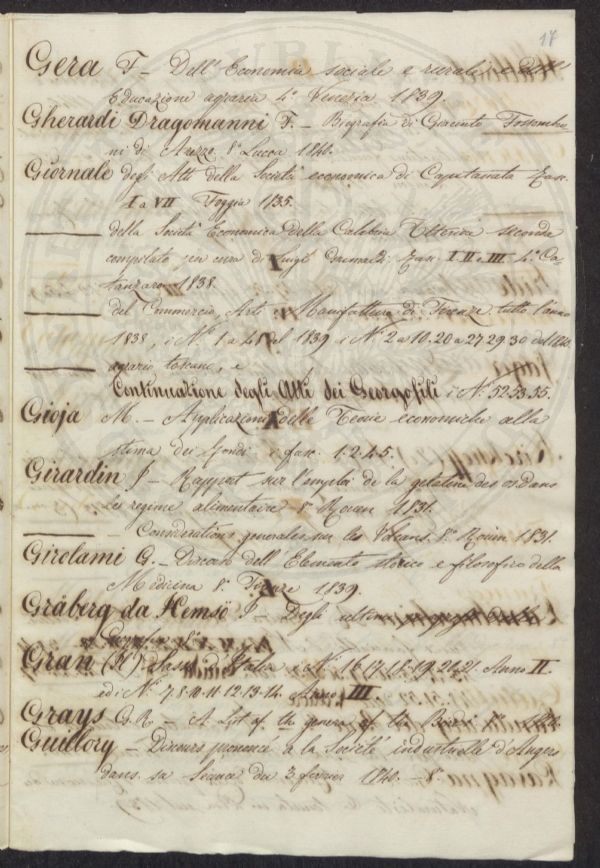 17
Gera F – Dell' Economia sociale e rurale e dell'
Educazione agraria 4.° Venezia 1839.
Gherardi Dragomanni F. – Biografia di Giacinto Fossombro-
ni di Arezzo 8.° Lucca 1840.
Giornale degli Atti della Società economica di Capitanata Fasc.
I a VII Foggia 1835.
della Società Economica della Calabria Ulteriore seconda
compilato per cura di Luigi Grimaldi. Fasc. I. II e III 4.° Ca-
tanzaro 1838.
del Commercio, Arti e Manifatture di Firenze tutto l'anno
1838, i N.i 1 a 48 del 1839 i N.i 2 a 10. 20 a 27. 29. 30 del 1840.
agrario toscano, e
Continuazione degli Atti dei Georgofili i N.i 52. 53. 55.
Gioja M. – Applicazioni delle Teorie economiche alla
stima dei fondi i fasc. 1. 2. 4. 5.
Girardin J – Rapport sur l'emploi de la gelatine des os dans
le regime alimentaire 8.° Rouen 1831.
Considerations generales sur les Volcans 8.° Rouen 1831.
Girolami G. – Discorso dell' Elemento storico e filosofico della
Medicina 8.° Firenze 1839.
Gråberg da Hemsö J – Degli ultimi progressi della
Geografia 8.°
Gran (Il) Sasso d'Italia i N.i 16. 17. 18. 19. 20. 21 Anno II.
ed i N.i 7. 8. 10. 11. 12. 13. 14. Anno III.
Grays G. R – A List of the genera of the Birds 8.°
Guillory – Discours prononcé à la Société industrielle d'Angers
dans sa Séance du 3 fevrier 1840. – 8.°